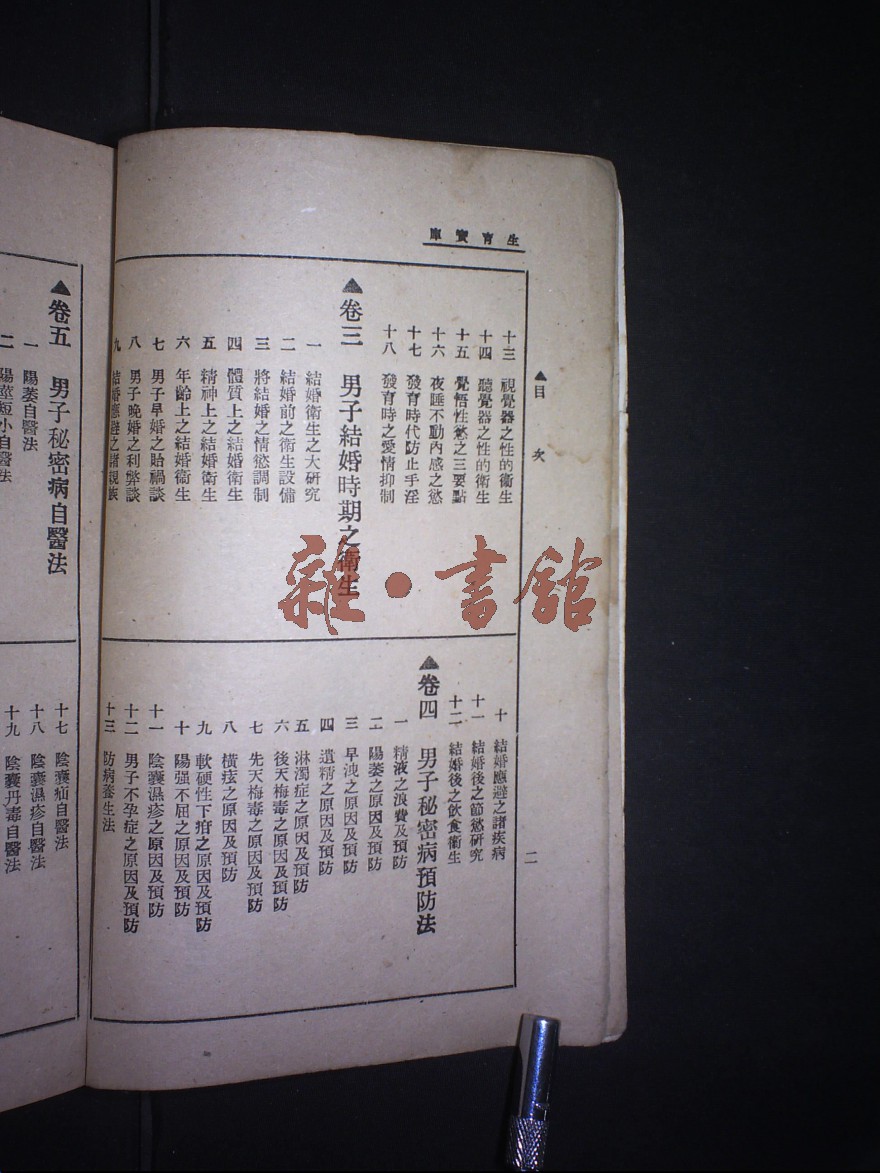 生育寶庫
▲目次
二
十三 視覺器之性的衛生
十四 聽覺器之性的衛生
十五 覺悟性慾之三要點
十六 夜睡不動內感之慾
十七 發育時代防止手淫
十八 發育時之愛情抑制
▲卷三 男子結婚時期之衛生
一 結婚衛生之大研究
二 結婚前之衛生設備
三 將結婚之情慾調制
四 體質上之結婚衛生
五 精神上之結婚衛生
六 年齡上之結婚衛生
七 男子早婚之貽禍談
八 男子晚婚之利弊談
九 結婚應避之諸親族
十 結婚應避之諸疾病
十一 結婚後之節慾研究
十二 結婚後之飲食衛生
▲卷四 男子秘密病預防法
一 精液之浪費及預防
二 陽萎之原因及預防
三 早洩之原因及預防
四 遺精之原因及預防
五 淋濁症之原因及預防
六 後天梅毒之原因及預防
七 先天梅毒之原因及預防
八 橫痃之原因及預防
九 軟硬性下疳之原因及預防
十 陽强不屈之原因及預防
十一 陰囊濕疹之原因及預防
十二 男子不孕症之原因及預防
十三 防病養生法
▲卷五 男子秘密病自醫法
一 陽萎自醫法
二 陽莖短小自醫法
十七 陰囊疝自醫法
十八 陰囊濕疹自醫法
十九 陰囊丹毒自醫法
雜·書館